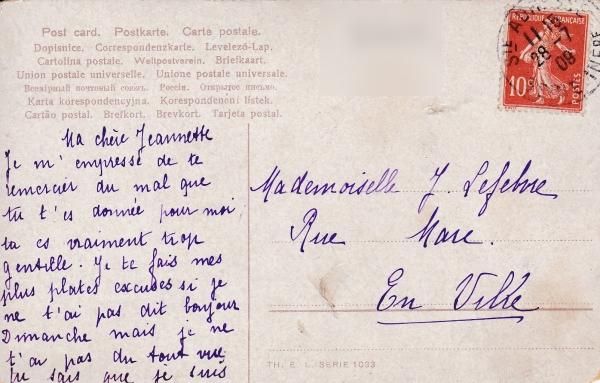 Post card. Postkarte. Carte postale.
Dopisnice. Correspondenzkarte. Levelező-Lap.
Cartolina postale. Weltpostverein. Briefkaart.
Union postale universelle. Unione postale universale.
Всемірный почтовый союзъ. Россія. Открытое письмо.
Karta korespondencyjna. Korespondenční lístek.
Cartão postal. Brefkort. Brevkort. Tarjeta postal.
Ma chère Jeannette
Je m'empresse de te
remercier du mal que
tu t'es donnée pour moi,
tu es vraiment trop
gentille. Je te fais mes
plus plates excuses si je
ne t'ai pas dit bonjour
Dimanche mais je ne
t'ai pas du tout vue
tu sais que je suis
REPUBLIQUE FRANÇAISE
10c
POSTES
11
28 - 7
09
Mademoiselle J. Lefebvre
Rue Mare.
En Ville
TH. E. L. SERIE 1033